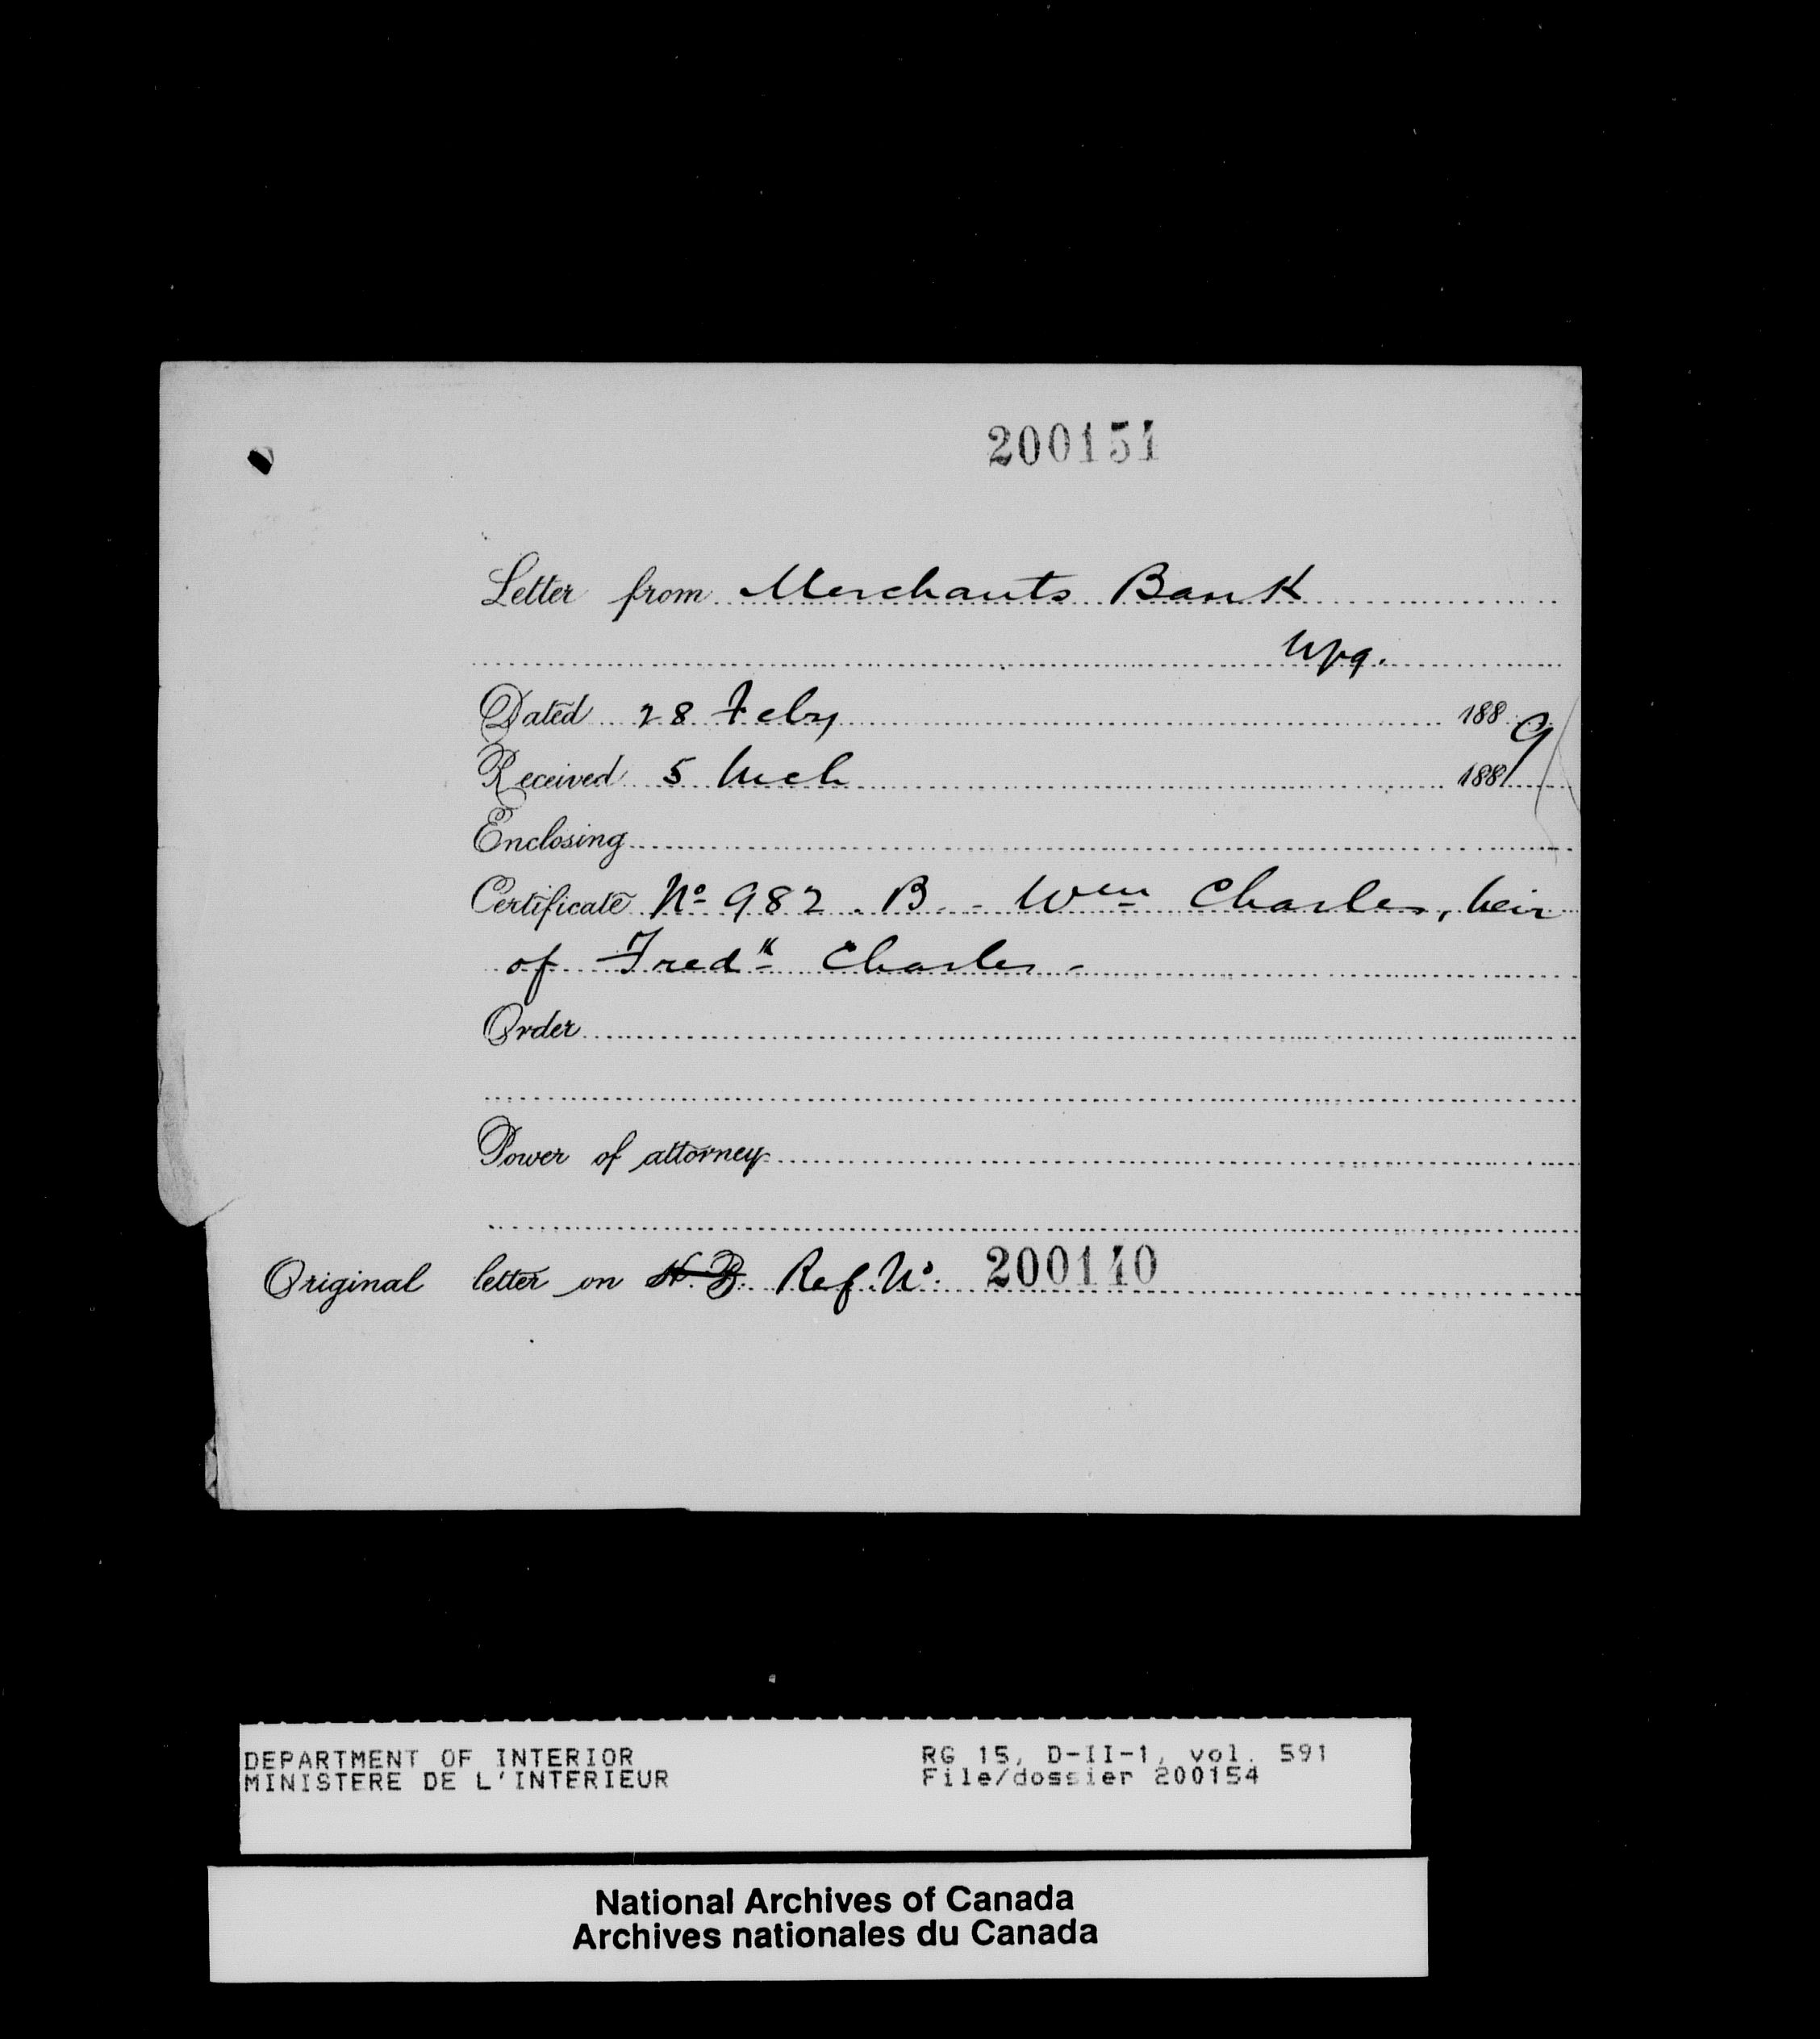 200154
Letter from Merchants Bank
Wpg.
Dated 28 Feby 1889
Received 5 Mch 188
Enclosing
Certificate No 982 . B. - Wm Charles, heir
of Fredk Charles -
Order
Power of attorney
Original letter on H. B. Ref. No. 200140
DEPARTMENT OF INTERIOR
MINISTERE DE L'INTERIEUR
RG 15, D-II-1, vol. 591
File/dossier 200154
National Archives of Canada
Archives nationales du Canada